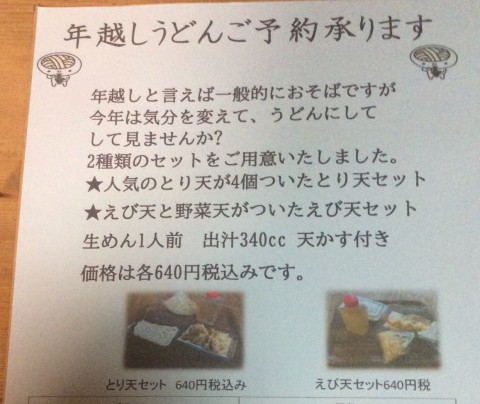 年越しうどんご予約承ります
年越しと言えば一般的におそばですが
今年は気分を変えて、うどんにして
して見ませんか?
2種類のセットをご用意いたしました。
★人気のとり天が4個ついたとり天セット
★えび天と野菜天がついたえび天セット
生めん1人前 出汁340cc 天かす付き
価格は各640円税込みです。
とり天セット 640円税込み
えび天セット640円税